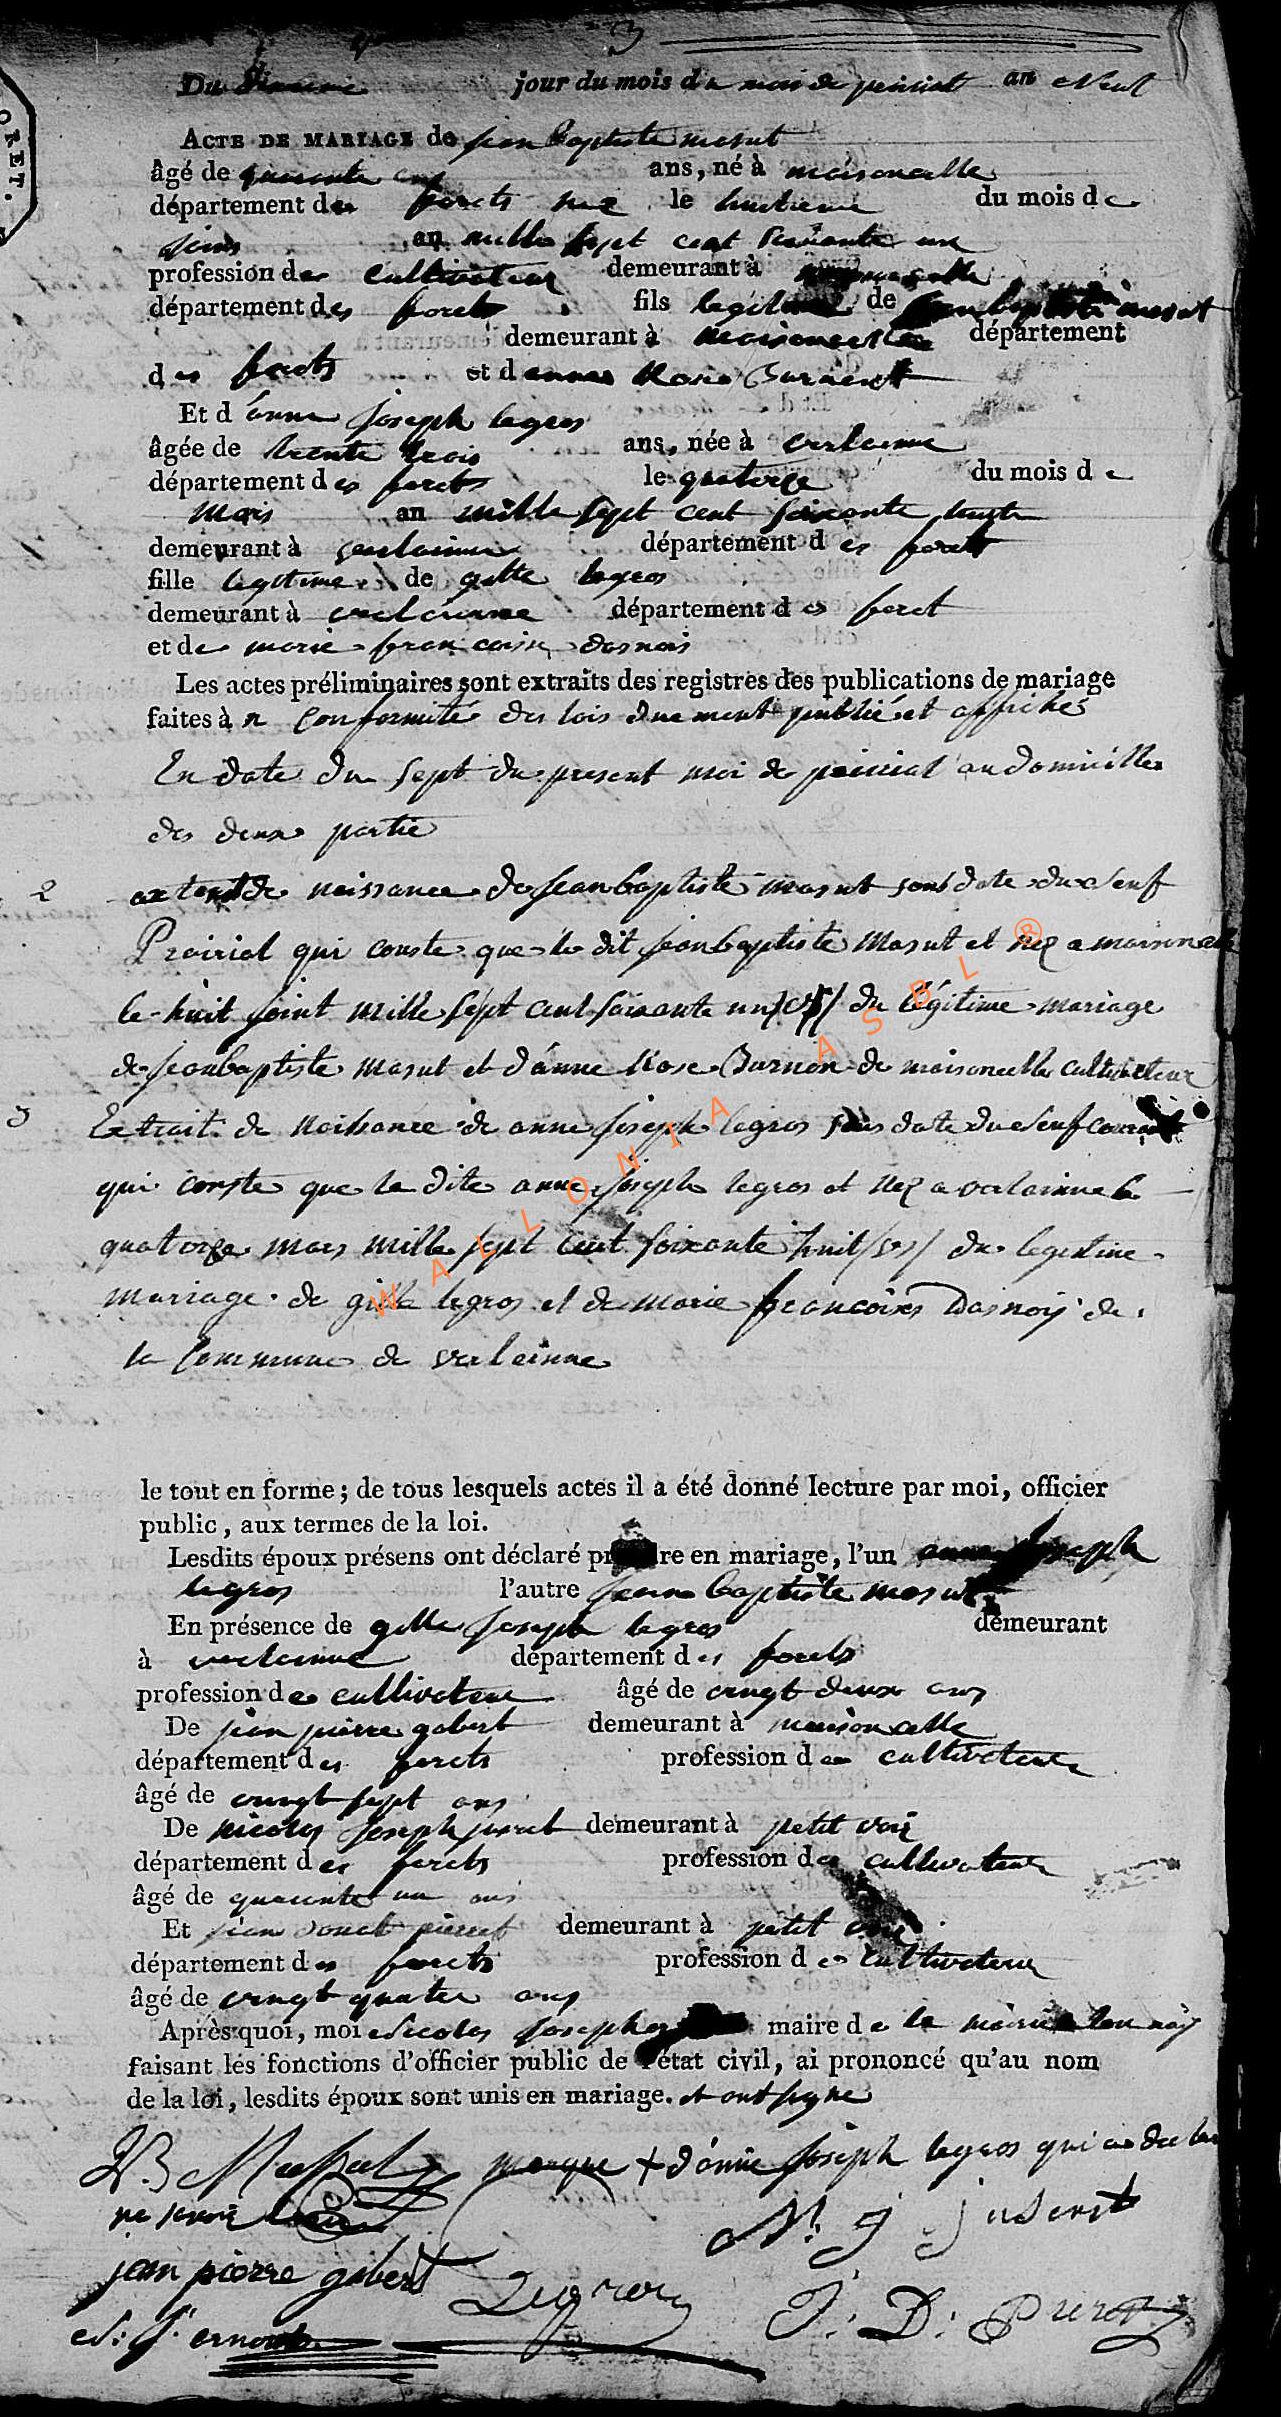 3
Du jour du mois de mois de prairial an Neuf
ACTE DE MARIAGE de jean baptiste masut
âgé de quarante ans, né à maisoncelle
département des forets nez le huitieme du mois de
juin an mille sept cent soixante un
profession de cultivateur demeurant à
département des forets fils legitime de jean baptiste masut
demeurant à maisoncelle département
des forets et d anne Rose Burnent
Et d'anne joseph legros
âgée de trente trois ans, née à verlainne
département des forets le quatorze du mois de
mars an mille sept cent soixante huit
demeurant à verlainne département des forets
fille legitime de gille legros
demeurant à verlainne département des foret
et de marie francoise dasnois
Les actes préliminaires sont extraits des registres des publications de mariage
faites à n conformité des lois duement publié et affiché
En date du sept du present moi de prairial au domicille
des deux partie
2 extrait de naissance de jean baptiste masut sous date du Neuf
Prairial qui conste que le dit jean baptiste Masut et nez a maisoncelle
le huit joint mille sept cent soixante un du légitime mariage
de jean baptiste masut et d'anne Rose Burnon de maisoncelle cultivateur
3 Extrait de Naissance de anne joseph legros sous date du Neuf courant
qui conste que la dite anne joseph legros et Nez a verlainne le
quatorze mars mille sept cent soixante huit du legitime
mariage de gille legros et de Marie francoises Dasnoij de
la Commune de verlainne
WALLONIA ASBL ®
le tout en forme ; de tous lesquels actes il a été donné lecture par moi, officier
public, aux termes de la loi.
Lesdits époux présens ont déclaré prendre en mariage, l'un anne joseph
legros l'autre jean baptiste masut
En présence de gille joseph legros demeurant
à verlainne département des forets
profession de cultivateur âgé de vingt deux ans
De jean pierre gobert demeurant à maisoncelle
département des forets profession de cultivateur
âgé de vingt sept ans
De nicolas joseph demeurant à petit voir
département des forets profession de cultivateur
âgé de quarante un ans
Et jean pierret demeurant à petit
département des forets profession de cultivateur
âgé de vingt quater ans
Après quoi, moi Nicolas joseph maire de la mairie
faisant les fonctions d'officier public de l'état civil, ai prononcé qu'au nom
de la loi, lesdits époux sont unis en mariage. et ont signe
marque + d'anne joseph legros qui a declare
ne savoir
N: J
jean pierre gobert Legros J: D: Pierret